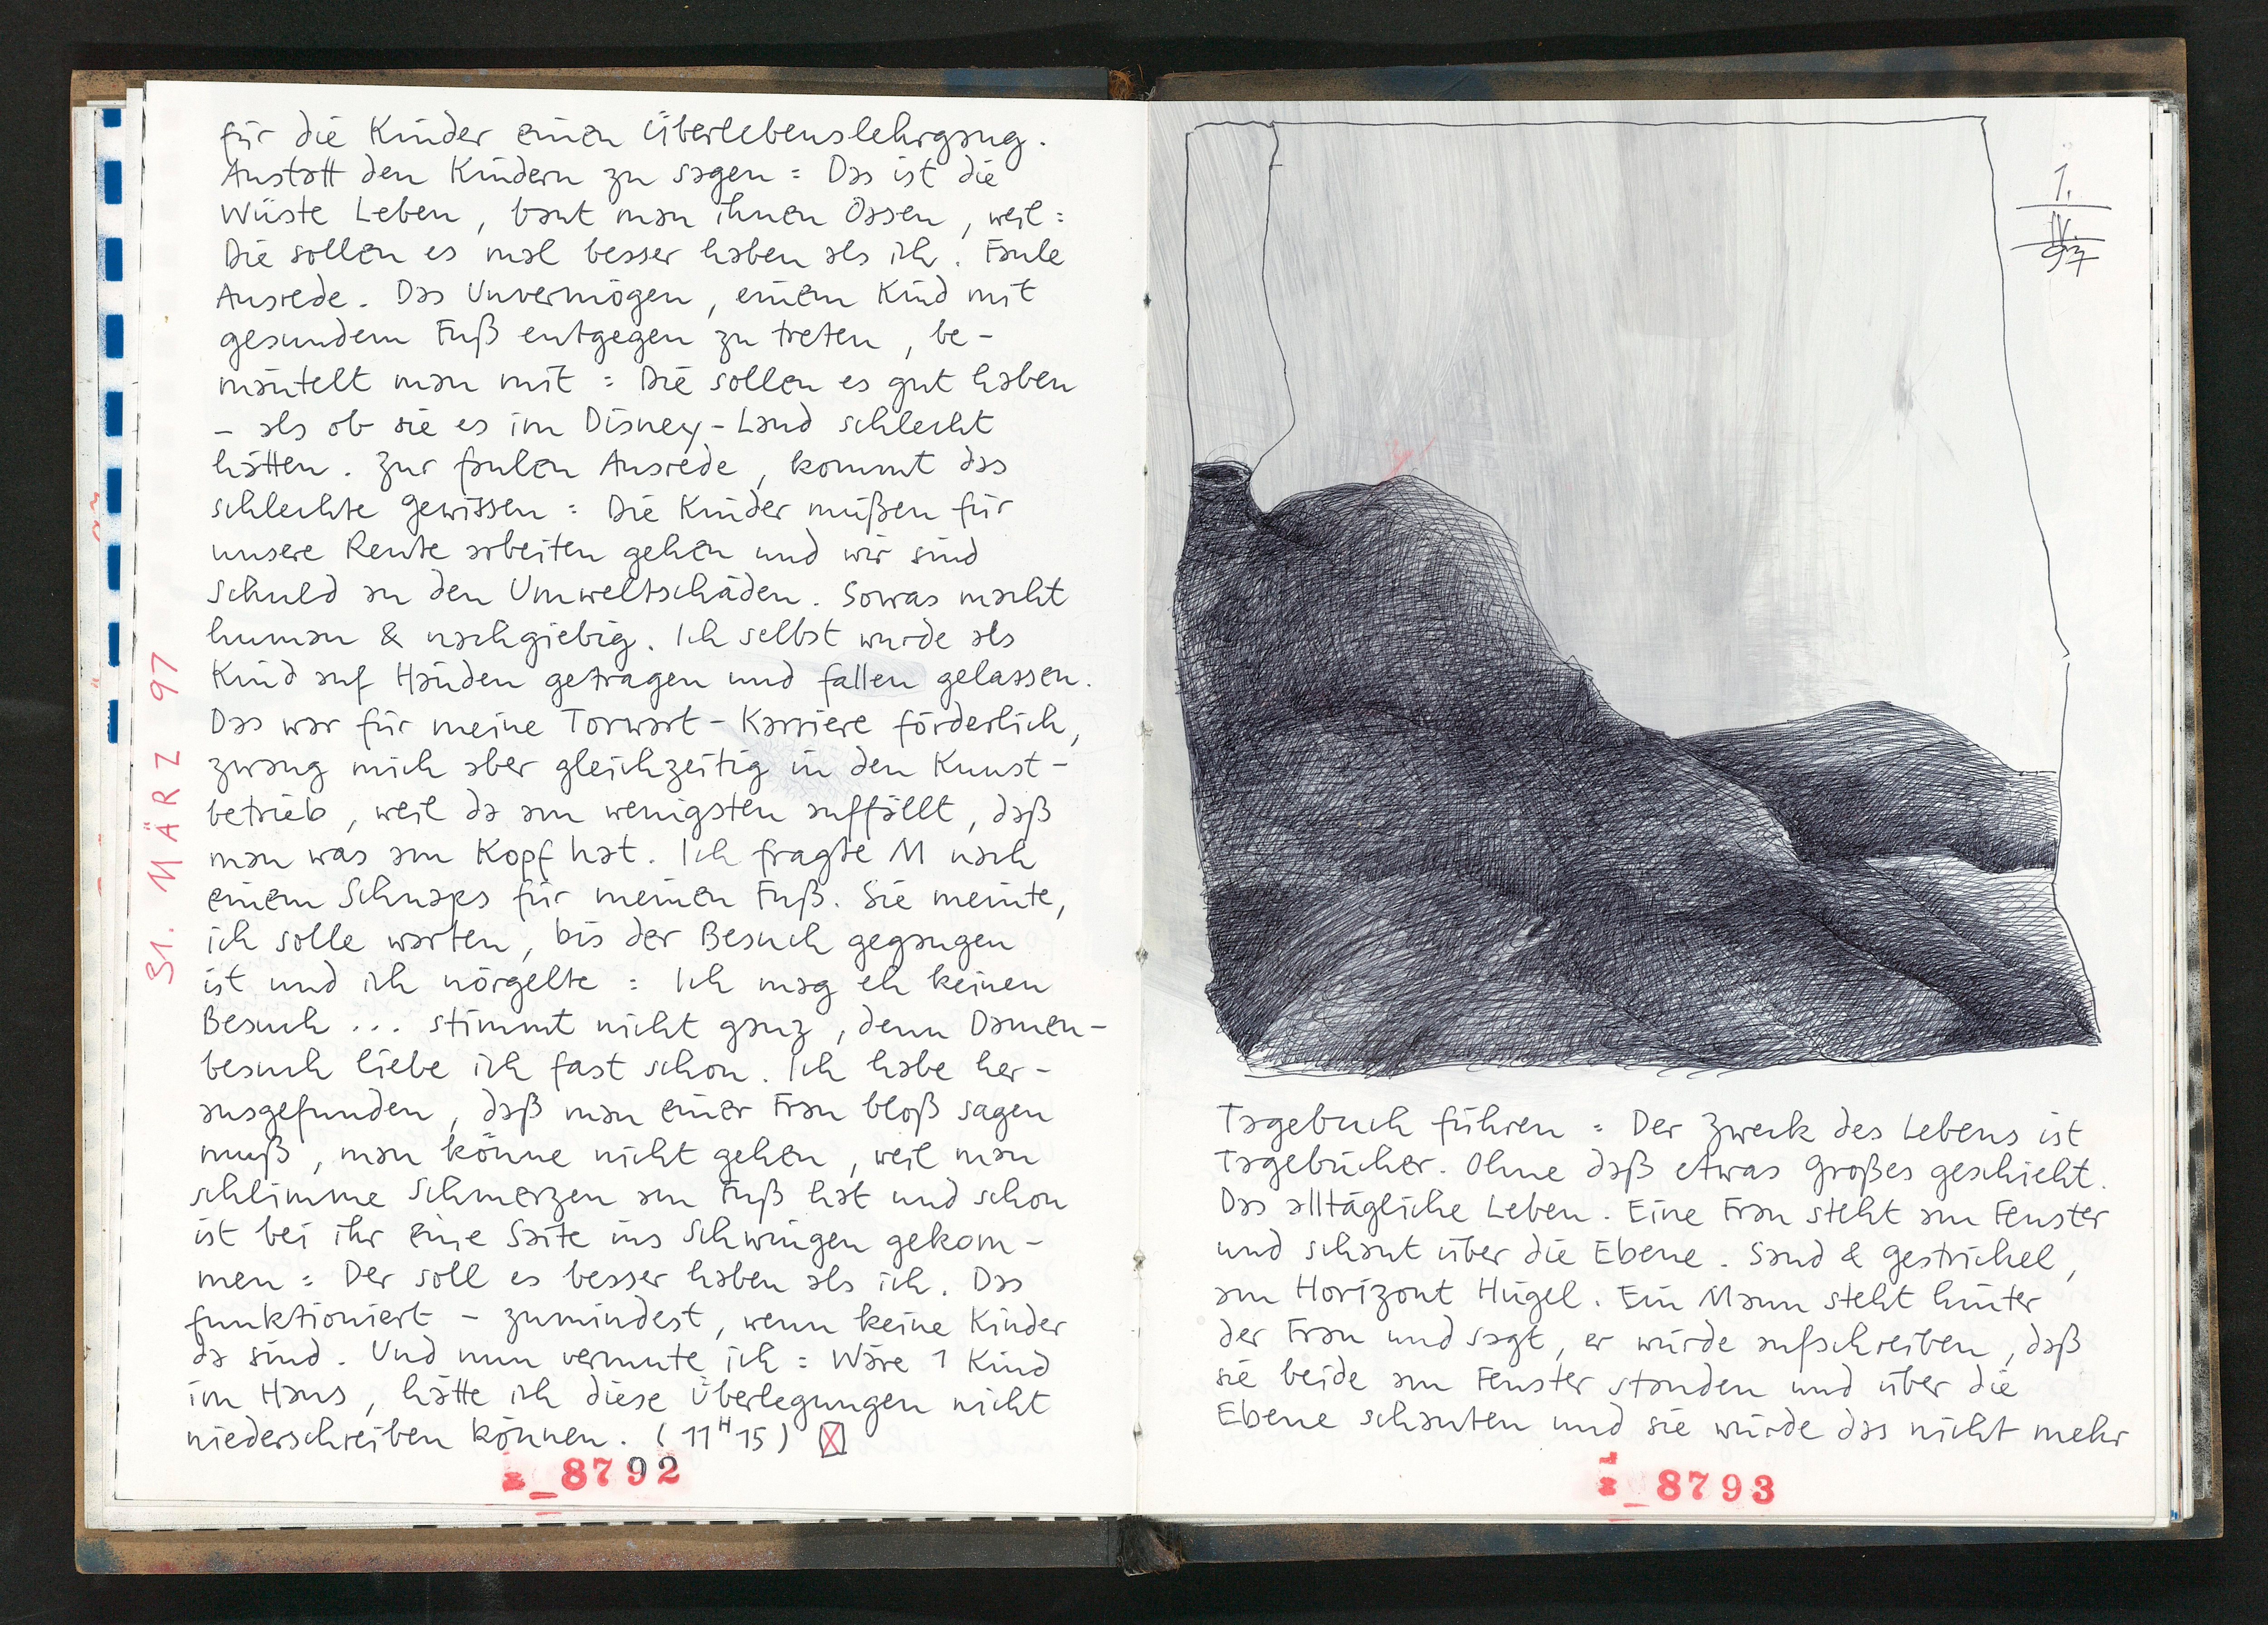 für die Kinder einen Überlebenslehrgang.
Anstatt den Kindern zu sagen : Das ist die
Wüste Leben, baut man ihnen Oasen, weil :
Die sollen es mal besser haben als ich. Faule
Ausrede. Das Unvermögen, einem Kind mit
gesundem Fuß entgegen zu treten, be-
mäntelt man mit : Die sollen es gut haben
– als ob sie es im Disney-Land schlecht
hätten. Zur faulen Ausrede, kommt das
schlechte Gewissen : Die Kinder müßen für
unsere Rente arbeiten gehen und wir sind
Schuld an den Umweltschäden. Sowas macht
human & nachgiebig. Ich selbst wurde als
Kind auf Händen getragen und fallen gelassen.
Das war für meine Torwart-Karriere förderlich,
zwang mich aber gleichzeitig in den Kunst-
betrieb, weil da am wenigsten auffällt, daß
man was am Kopf hat. Ich fragte M nach
einem Schnaps für meinen Fuß. Sie meinte,
ich solle warten, bis der Besuch gegangen
ist und ich nörgelte : Ich mag eh keinen
Besuch ... stimmt nicht ganz, denn Damen-
besuch liebe ich fast schon. Ich habe her-
ausgefunden, daß man einer Frau bloß sagen
muß, man könne nicht gehen, weil man
schlimme Schmerzen am Fuß hat und schon
ist bei ihr eine Saite ins Schwingen gekom-
men : Der soll es besser haben als ich. Das
funktioniert – zumindest, wenn keine Kinder
da sind. Und nun vermute ich : Wäre 1 Kind
im Haus, hätte ich diese Überlegungen nicht
niederschreiben können. (11H15)
31. MÄRZ 97
8792
1.
IV.
97
Tagebuch führen : Der Zweck des Lebens ist
Tagebücher. Ohne daß etwas Großes geschieht.
Das alltägliche Leben. Eine Frau steht am Fenster
und schaut über die Ebene. Sand & Gestrichel,
am Horizont Hügel. Ein Mann steht hinter
der Frau und sagt, er würde aufschreiben, daß
sie beide am Fenster standen und über die
Ebene schauten und sie würde das nicht mehr
8793